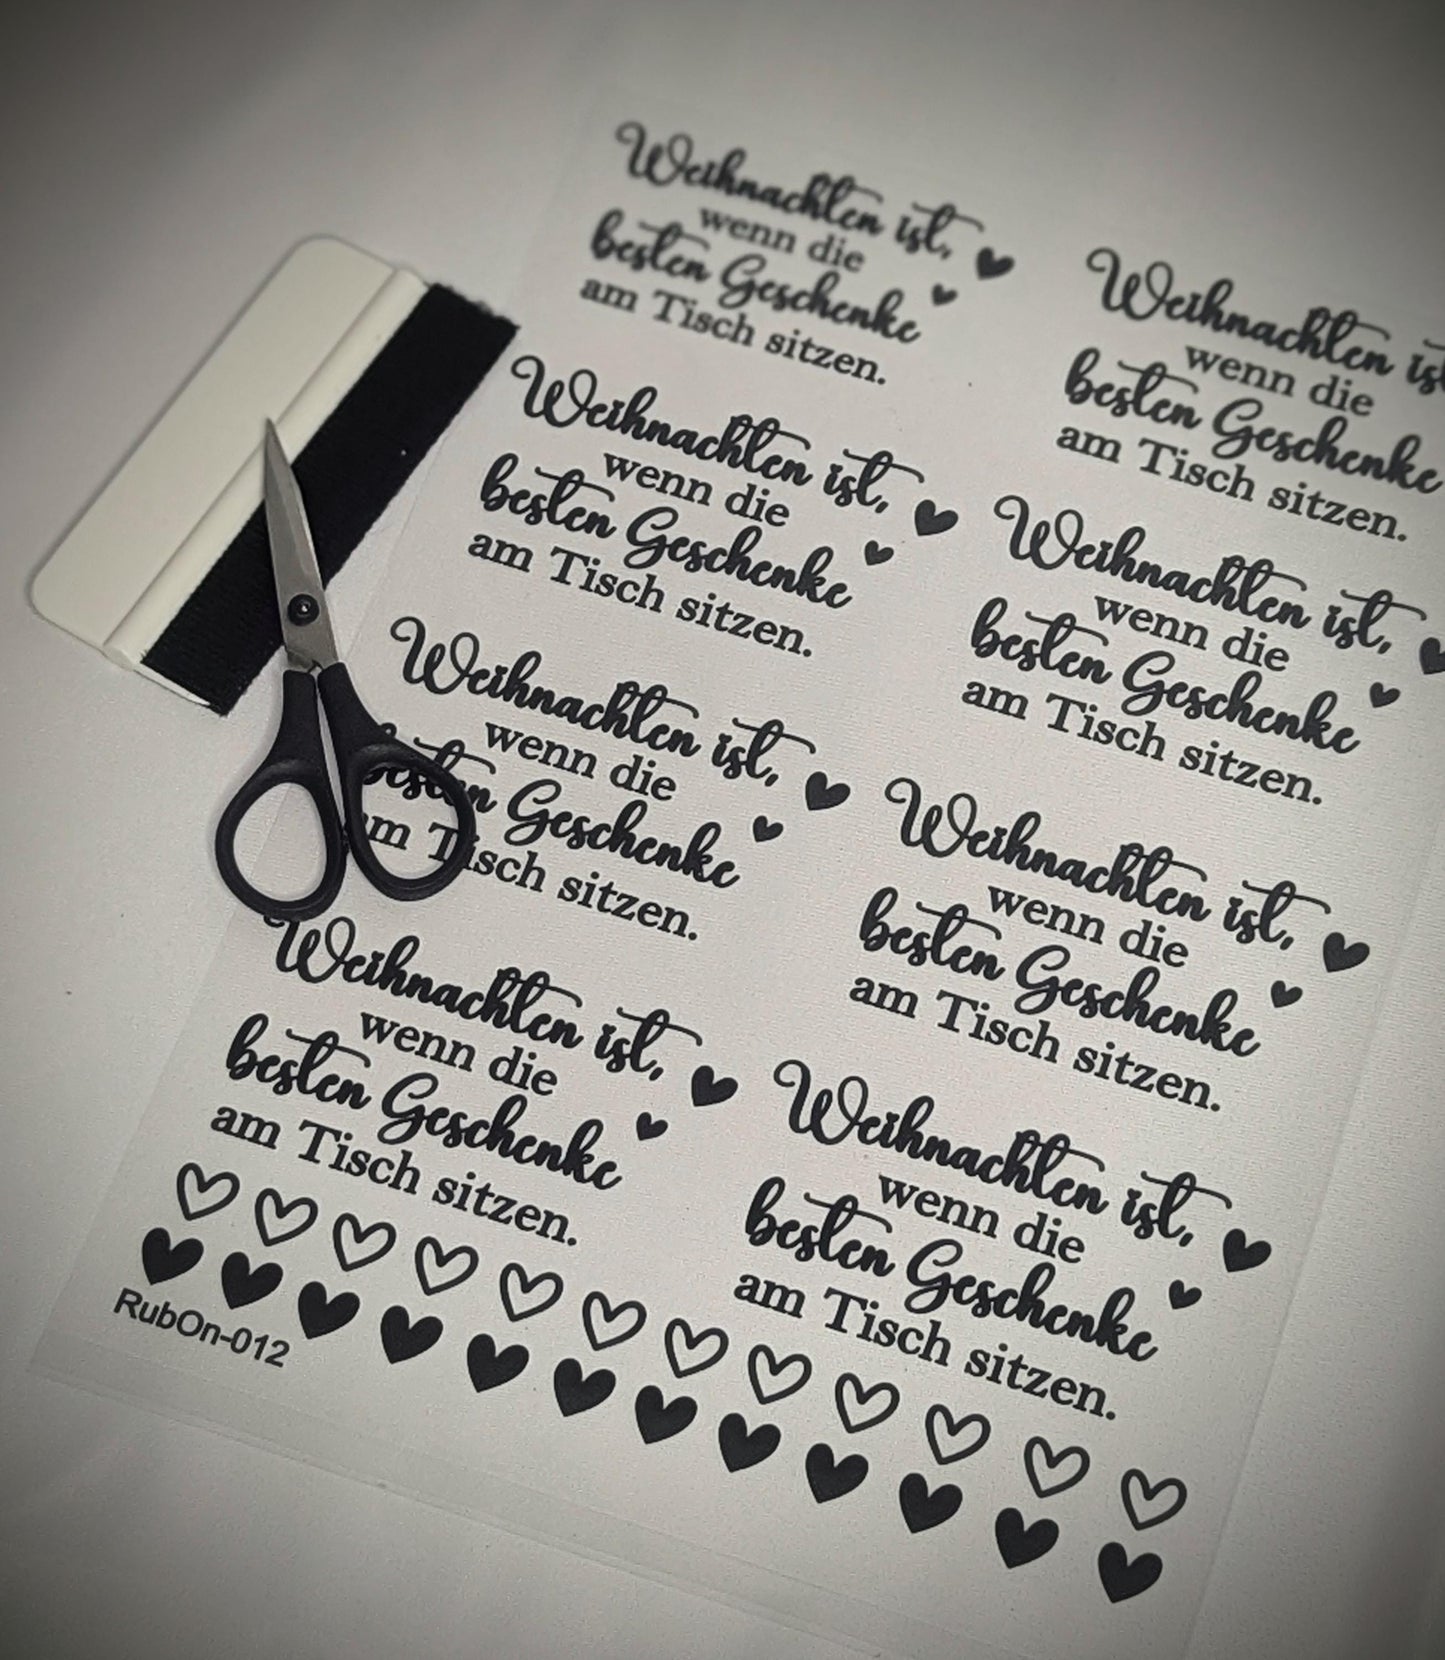 Weihnachten ist,
wenn die
besten Geschenke
am Tisch sitzen.
Weihnachten ist,
wenn die
besten Geschenke
am Tisch sitzen.
Weihnachten ist,
wenn die
besten Geschenke
am Tisch sitzen.
Weihnachten ist,
wenn die
besten Geschenke
am Tisch sitzen.
RubOn-012
Weihnachten ist
wenn die
besten Geschenke
am Tisch sitzen.
Weihnachten ist,
wenn die
besten Geschenke
am Tisch sitzen.
Weihnachten ist,
wenn die
besten Geschenke
am Tisch sitzen.
Weihnachten ist,
wenn die
besten Geschenke
am Tisch sitzen.